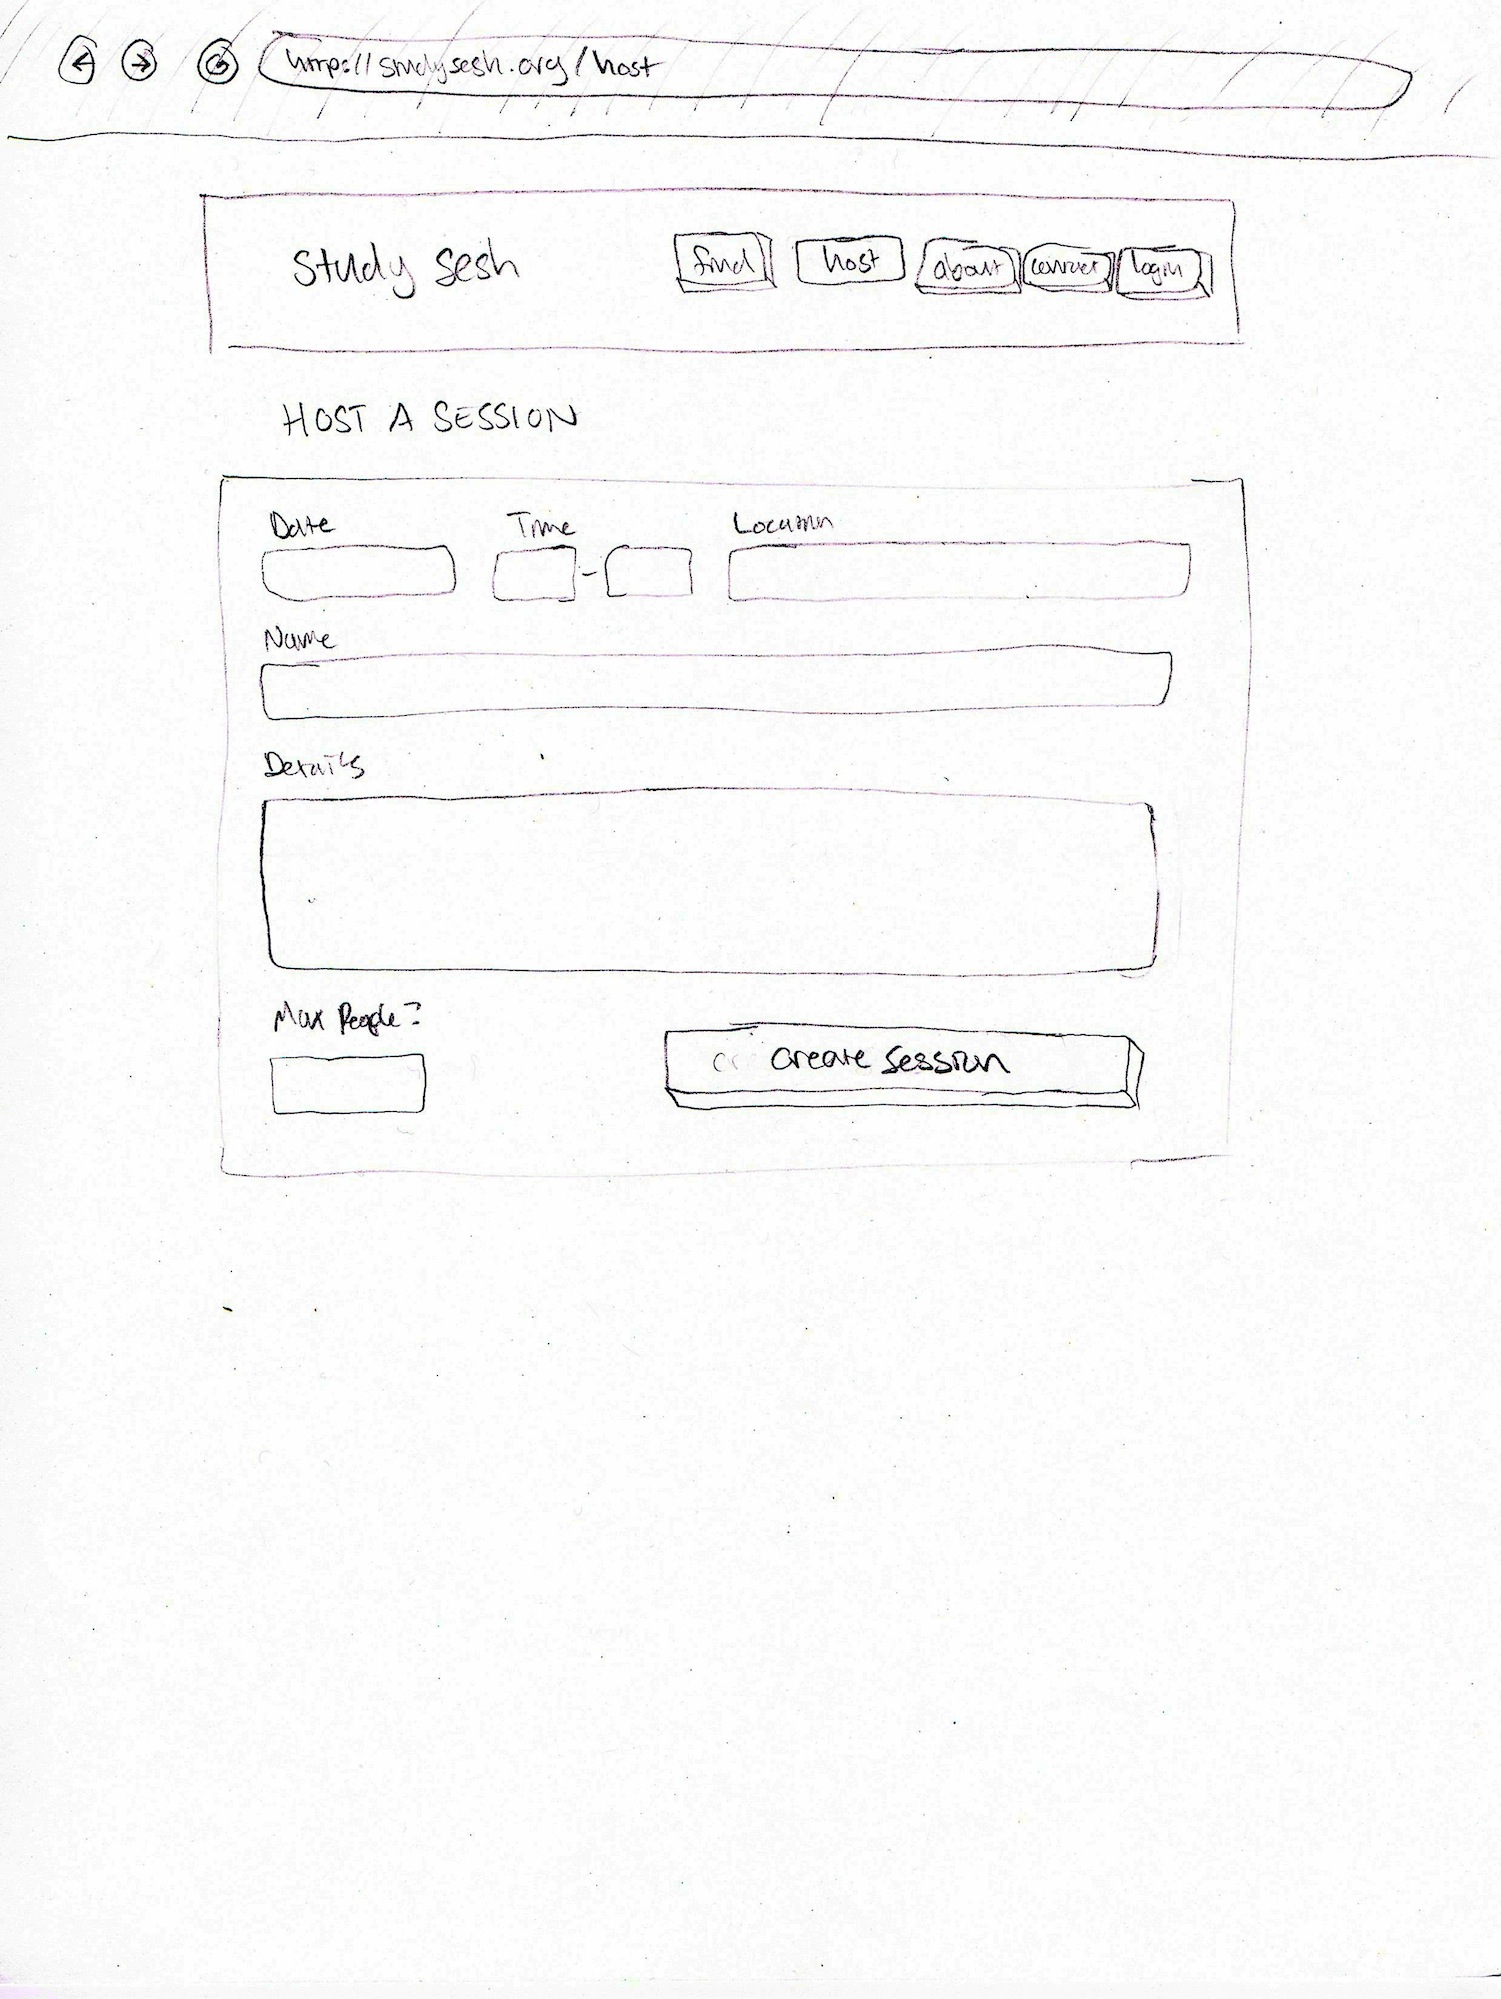 http://studysesh.org/host
study sesh
find host about contact login
HOST A SESSION
Date Time Location
-
Name
Details
Max People?
create session